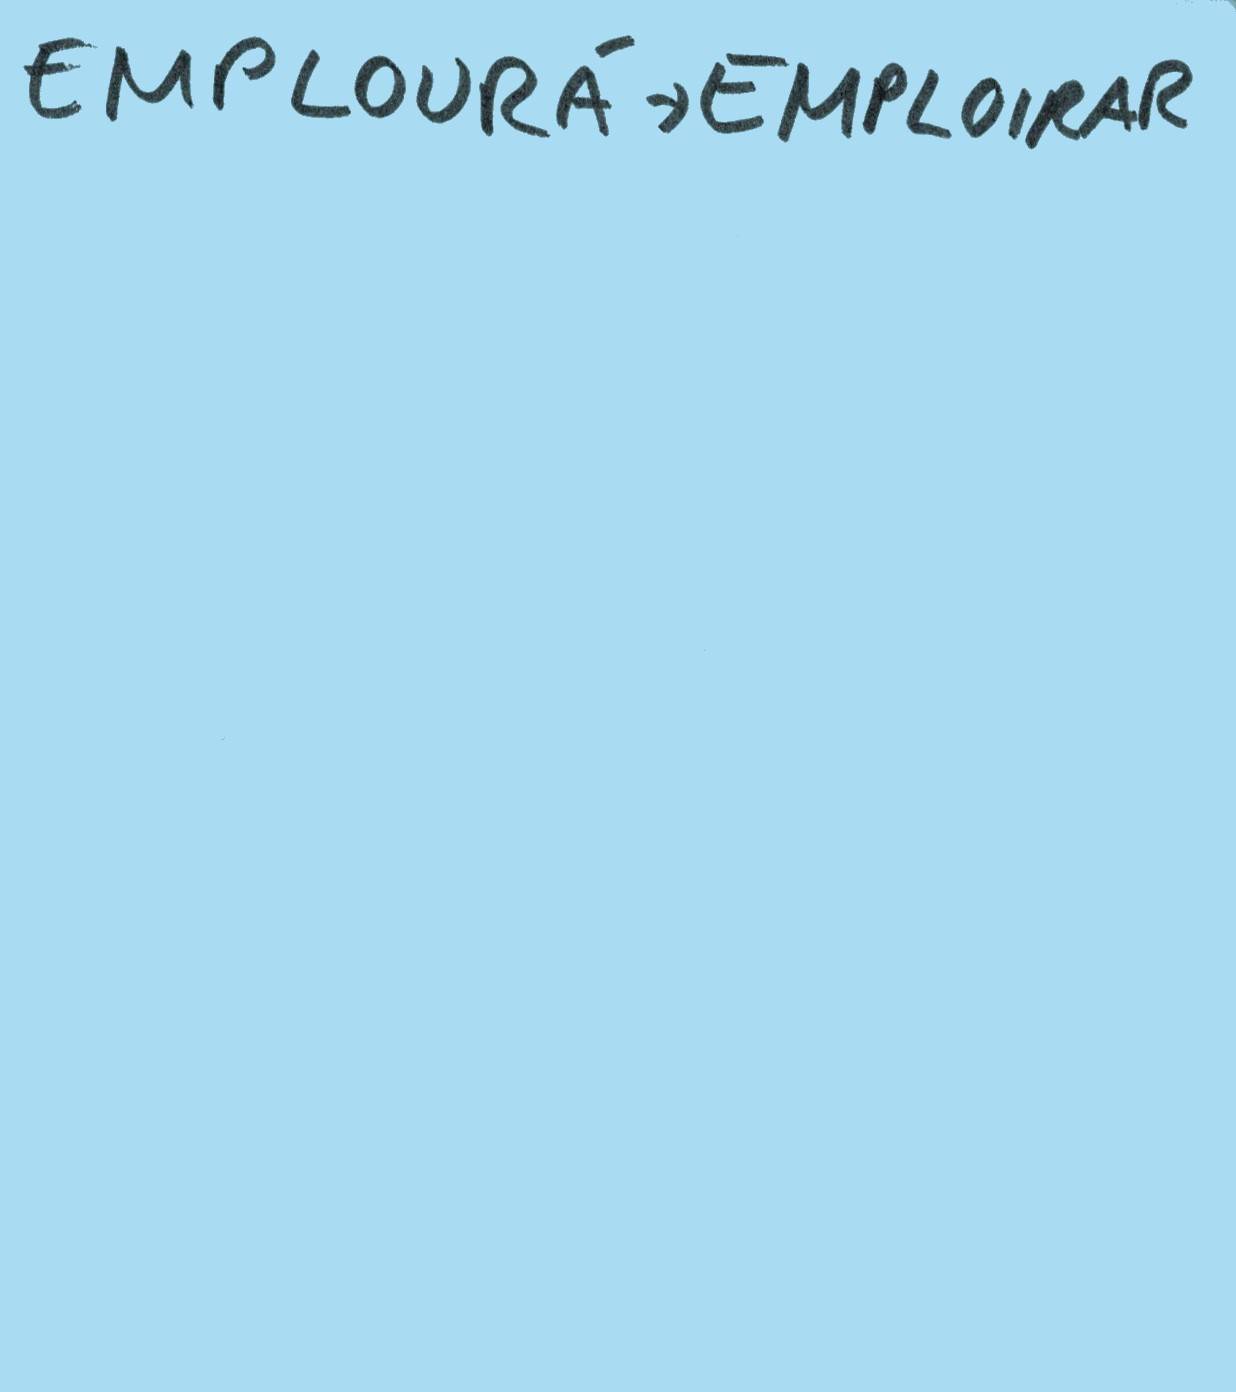 EMPLOURÁ → EMPLOIRAR